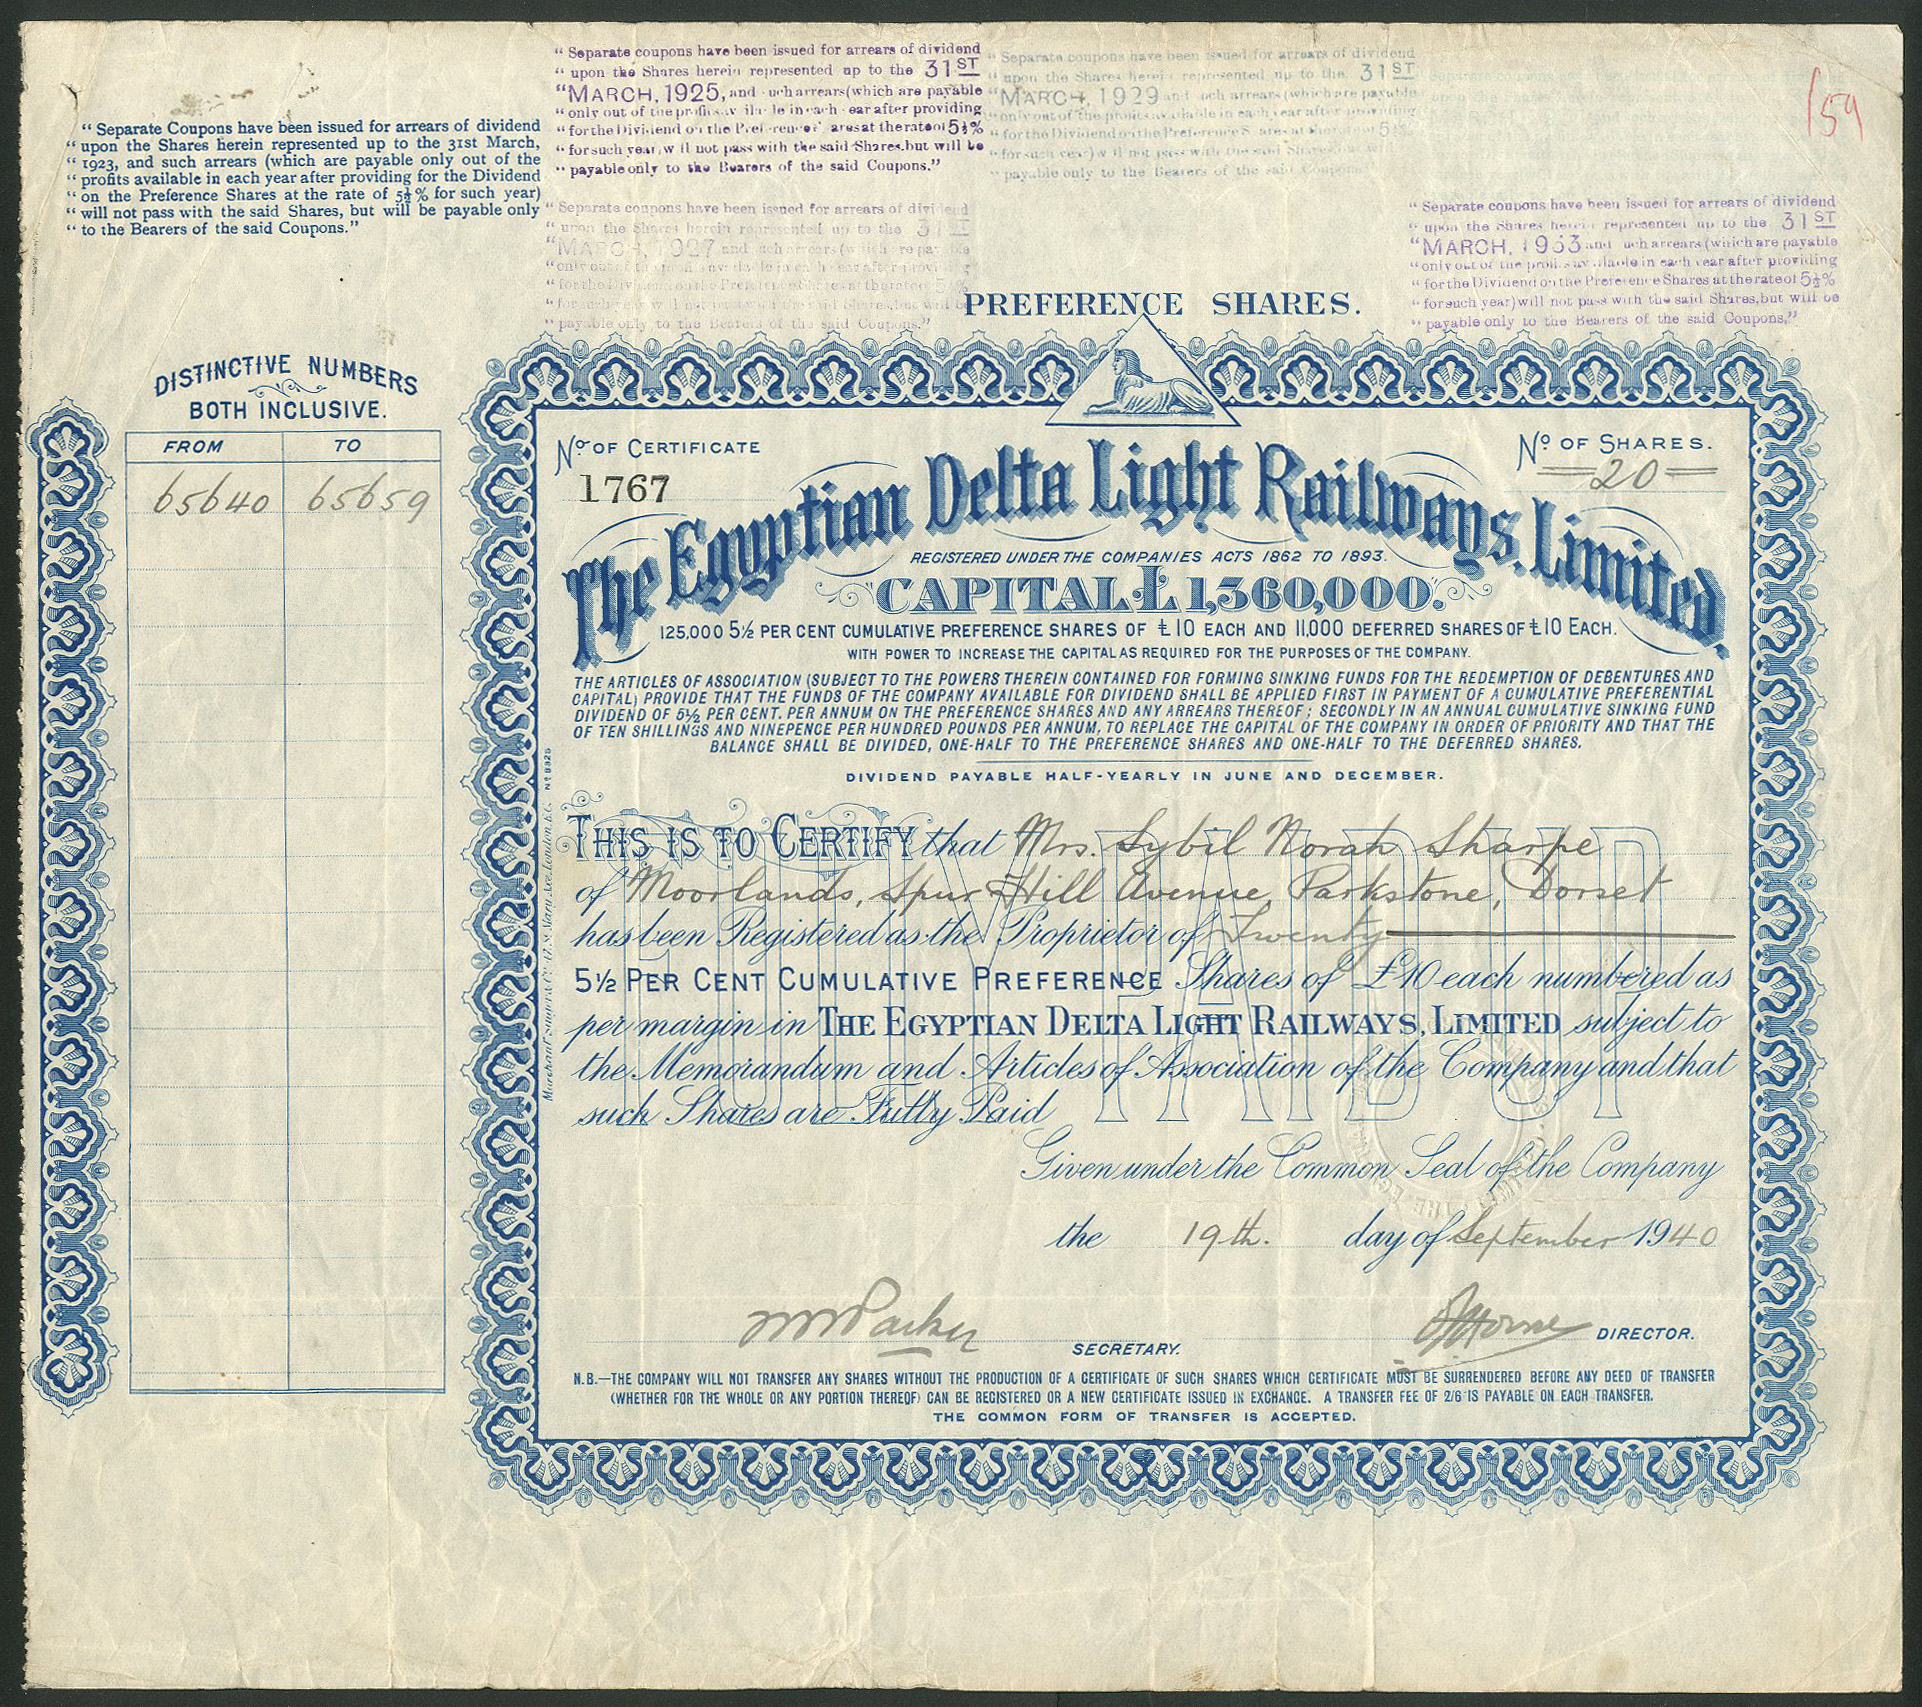 “ Separate Coupons have been issued for arrears of dividend
“ upon the Shares herein represented up to the 31st March,
“ 1923, and such arrears (which are payable only out of the
“ profits available in each year after providing for the Dividend
“ on the Preference Shares at the rate of 5½% for such year)
“ will not pass with the said Shares, but will be payable only
“ to the Bearers of the said Coupons.”
“ Separate coupons have been issued for arrears of dividend
“ upon the Shares herein represented up to the 31ST
“ MARCH, 1925, and such arrears (which are payable
“ only out of the profits available in each year after providing
“ for the Dividend on the Preference Shares at the rate of 5½%
“ for such year, will not pass with the said Shares, but will be
“ payable only to the Bearers of the said Coupons.”
“ Separate coupons have been issued for arrears of dividend
“ upon the Shares herein represented up to the 31ST
“ MARCH, 1929 and such arrears (which are payable
“ only out of the profits available in each year after providing
“ for the Dividend on the Preference Shares at the rate of 5½%
“ for such year) will not pass with the said Shares, but will
“ payable only to the Bearers of the said Coupons
159
“ Separate coupons have been issued for arrears of dividend
“ upon the Shares herein represented up to the 31ST
“ MARCH, 1927 and such arrears (which are payable
“ only out of the profits available in each year after providing
“ for the Dividend on the Preference Shares at the rate of 5½%
“ for such year will not pass with the said Shares, but will be
“ payable only to the Bearers of the said Coupons.”
“ Separate coupons have been issued for arrears of dividend
“ upon the Shares herein represented up to the 31ST
“ MARCH, 1933 and such arrears (which are payable
“ only out of the profits available in each year after providing
“ for the Dividend on the Preference Shares at the rate of 5½%
“ for such year) will not pass with the said Shares, but will be
“ payable only to the Bearers of the said Coupons,”
PREFERENCE SHARES.
DISTINCTIVE NUMBERS
BOTH INCLUSIVE.
FROM TO
65640 65659
No. OF CERTIFICATE
1767
No. OF SHARES.
20
The Egyptian Delta Light Railways, Limited.
REGISTERED UNDER THE COMPANIES ACTS 1862 TO 1893.
CAPITAL £1,360,000.
125,000 5½ PER CENT CUMULATIVE PREFERENCE SHARES OF £10 EACH AND 11,000 DEFERRED SHARES OF £10 EACH.
WITH POWER TO INCREASE THE CAPITAL AS REQUIRED FOR THE PURPOSES OF THE COMPANY.
THE ARTICLES OF ASSOCIATION (SUBJECT TO THE POWERS THEREIN CONTAINED FOR FORMING SINKING FUNDS FOR THE REDEMPTION OF DEBENTURES AND
CAPITAL) PROVIDE THAT THE FUNDS OF THE COMPANY AVAILABLE FOR DIVIDEND SHALL BE APPLIED FIRST IN PAYMENT OF A CUMULATIVE PREFERENTIAL
DIVIDEND OF 5½ PER CENT. PER ANNUM ON THE PREFERENCE SHARES AND ANY ARREARS THEREOF; SECONDLY IN AN ANNUAL CUMULATIVE SINKING FUND
OF TEN SHILLINGS AND NINEPENCE PER HUNDRED POUNDS PER ANNUM, TO REPLACE THE CAPITAL OF THE COMPANY IN ORDER OF PRIORITY AND THAT THE
BALANCE SHALL BE DIVIDED, ONE-HALF TO THE PREFERENCE SHARES AND ONE-HALF TO THE DEFERRED SHARES.
DIVIDEND PAYABLE HALF-YEARLY IN JUNE AND DECEMBER.
FULLY PAID UP
THIS IS TO CERTIFY that Mrs. Sybil Norah Sharpe
of Moorlands, Spur Hill Avenue, Parkstone, Dorset
has been Registered as the Proprietor of Twenty
5½ PER CENT CUMULATIVE PREFERENCE Shares of £10 each numbered as
per margin in THE EGYPTIAN DELTA LIGHT RAILWAYS, LIMITED subject to
the Memorandum and Articles of Association of the Company and that
such Shares are Fully Paid
Given under the Common Seal of the Company
the 19th. day of September 1940
Parker
SECRETARY.
DIRECTOR.
N.B.—THE COMPANY WILL NOT TRANSFER ANY SHARES WITHOUT THE PRODUCTION OF A CERTIFICATE OF SUCH SHARES WHICH CERTIFICATE MUST BE SURRENDERED BEFORE ANY DEED OF TRANSFER
(WHETHER FOR THE WHOLE OR ANY PORTION THEREOF) CAN BE REGISTERED OR A NEW CERTIFICATE ISSUED IN EXCHANGE. A TRANSFER FEE OF 2/6 IS PAYABLE ON EACH TRANSFER.
THE COMMON FORM OF TRANSFER IS ACCEPTED.